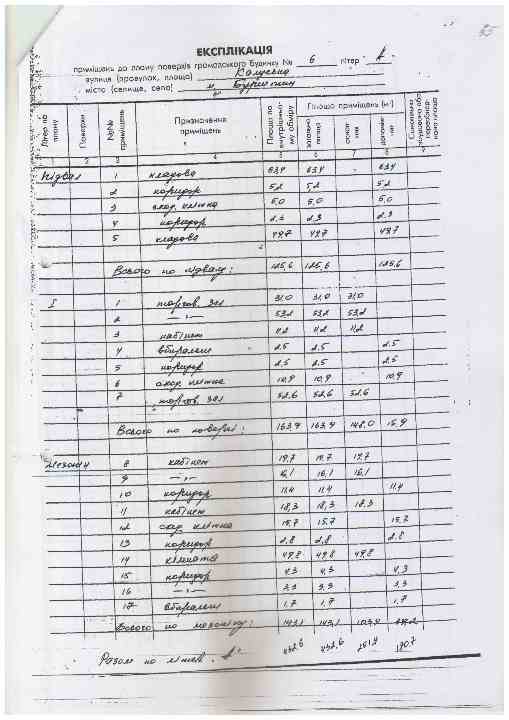 ЕКСПЛІКАЦІЯ
приміщень до плану поверхів громадського будинку № 6 літер А
вулиця (провулок, площа) Калуська
місто (селище, село) м. Бурштин
Літер по плану Поверхи №№ приміщень Призначення приміщень Площа по внутрішньому обміру Площа приміщень (м²) загальна площа основна допоміжна Самовільно
1 2 3 4 5 6 7 8 9
Підвал 1 кладова 63,4 63,4 63,4
2 коридор 5,2 5,2 5,2
3 сход. клітка 5,0 5,0 5,0
4 коридор 2,3 2,3 2,3
5 кладова 49,7 49,7 49,7
Всього по підвалу: 125,6 125,6 125,6
I 1 торгов. зал 31,0 31,0 31,0
2 —"— 53,2 53,2 53,2
3 кабінет 11,2 11,2 11,2
4 вбиральня 2,5 2,5 2,5
5 коридор 2,5 2,5 2,5
6 сход. клітка 10,9 10,9 10,9
7 торгов. зал 52,6 52,6 52,6
Всього по поверху: 163,9 163,9 148,0 15,9
Мезонін 8 кабінет 19,7 19,7 19,7
9 —"— 16,1 16,1 16,1
10 коридор 11,4 11,4 11,4
11 кабінет 18,3 18,3 18,3
12 сход. клітка 15,7 15,7 15,7
13 коридор 2,8 2,8 2,8
14 кімната 49,8 49,8 49,8
15 коридор 4,3 4,3 4,3
16 —"— 3,3 3,3 3,3
17 вбиральня 1,7 1,7 1,7
Всього по мезоніну: 143,1 143,1 103,9 39,2
Разом по літер. "А" 432,6 432,6 251,9 180,7